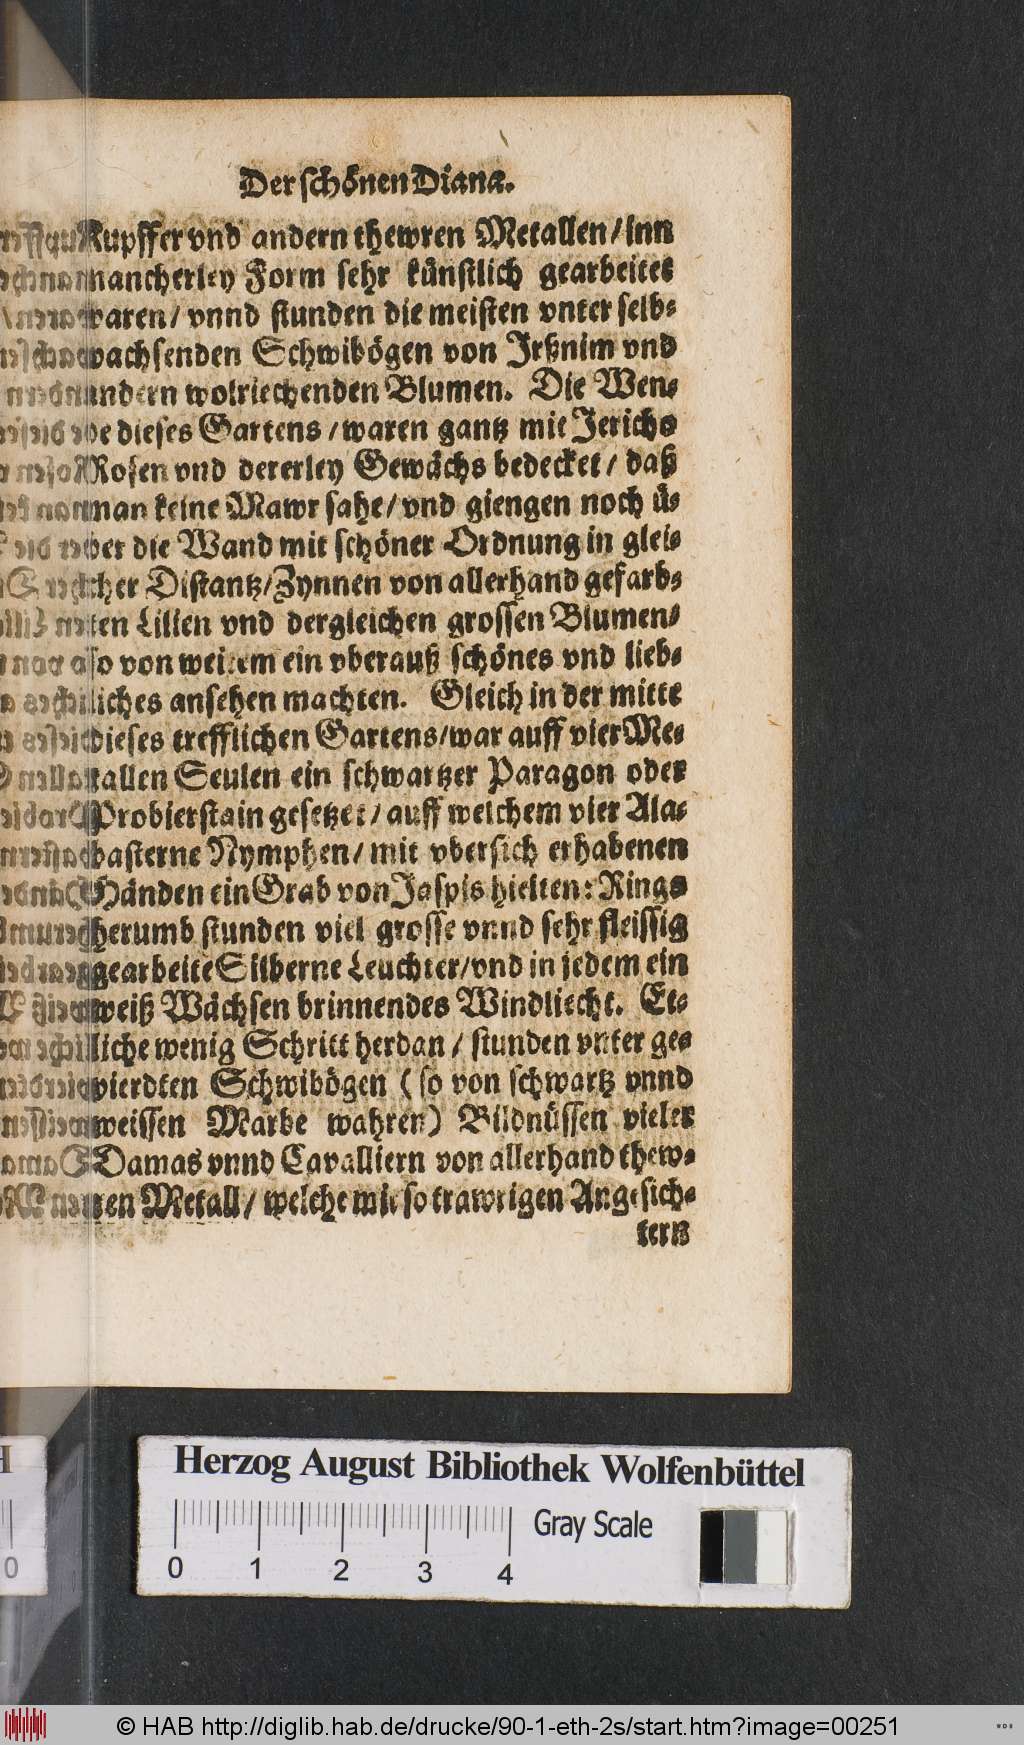 Der schönen Diana.
Kupffer vnd andern thewren Metallen/ inn
mancherley Form sehr künstlich gearbeitet
waren/ vnnd stunden die meisten vnter selb-
wachsenden Schwibögen von Jrßnim vnd
andern wolriechenden Blumen. Die Wen-
de dieses Gartens/ waren gantz mit Jericho
Rosen vnd dererley Gewächs bedecket/ daß
man keine Mawr sahe/ vnd giengen noch ü-
ber die Wand mit schöner Ordnung in glei-
cher Distantz/ Zynnen von allerhand gefarb-
ten Lilien vnd dergleichen grossen Blumen/
so von weitem ein vberauß schönes vnd lieb-
liches ansehen machten. Gleich in der mitte
dieses trefflichen Gartens/ war auff vier Me-
tallen Seulen ein schwartzer Paragon oder
Probierstain gesetzet/ auff welchem vier Ala-
basterne Nymphen/ mit vbersich erhabenen
Händen ein Grab von Jaspis hielten: Rings
herumb stunden viel grosse vnnd sehr fleissig
gearbeite Silberne Leuchter/ vnd in jedem ein
weiß Wächsen brinnendes Windliecht. Et-
liche wenig Schritt herdan/ stunden vnter ge-
vierdten Schwibögen (so von schwartz vnnd
weissen Marbe wahren) Bildnüssen vieler
Damas vnnd Cavalliern von allerhand thew-
ren Metall/ welche mit so trawrigen Angesich-
tern
Herzog August Bibliothek Wolfenbüttel
0 1 2 3 4 Gray Scale
© HAB http://diglib.hab.de/drucke/90-1-eth-2s/start.htm?image=00251